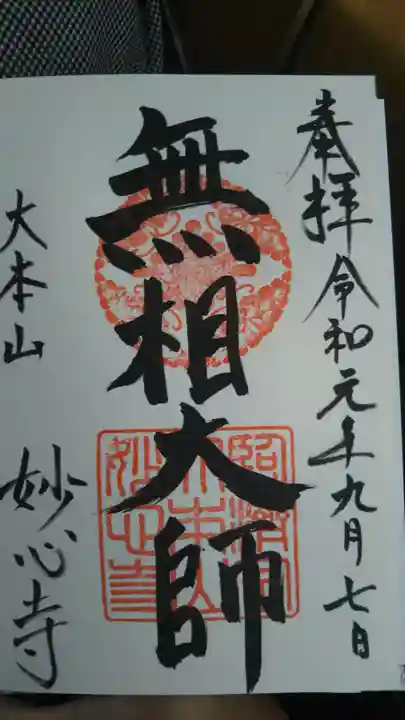 奉拝 令和元年九月七日
無相大師
大本山 妙心寺